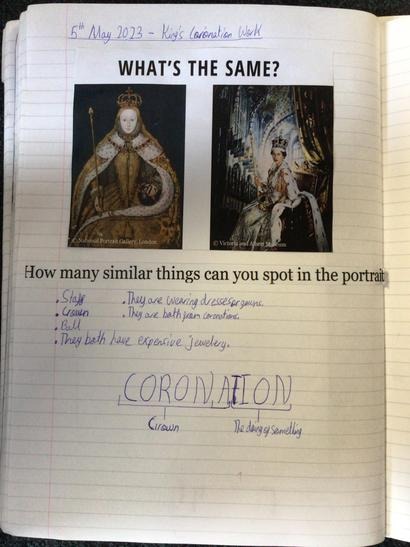 5th May 2023 - King's Coronation Work
WHAT'S THE SAME?
© National Portrait Gallery, London
© Victoria and Albert Museum
How many similar things can you spot in the portrait
• Staff
• Crown
• Ball
• They both have expensive jewelery.
• They are wearing dresses or gowns.
• They are both from coronations.
CORONATION
Crown
The doing of something